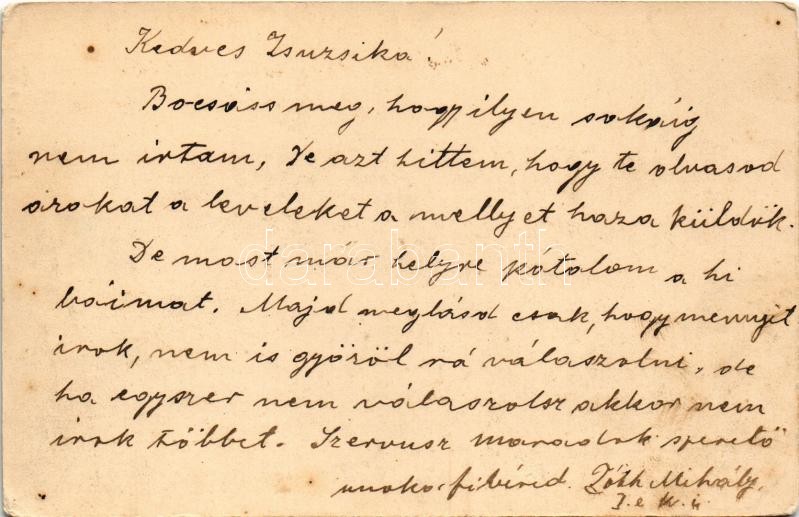 Kedves Zsuzsika!
Bocsáss meg, hogy ilyen sokáig
nem irtam, De azt hittem, hogy te olvasod
azokat a leveleket a mellyet haza küldök.
De most már helyre pótolom a hi
báimat. Majd meglásd csak, hogy mennyit
irok, nem is győzöl rá válaszolni, de
ha egyszer nem válaszolsz akkor nem
irok többet. Szervusz maradok szerető
unoka-fivéred. Tóth Mihály.
darabanth